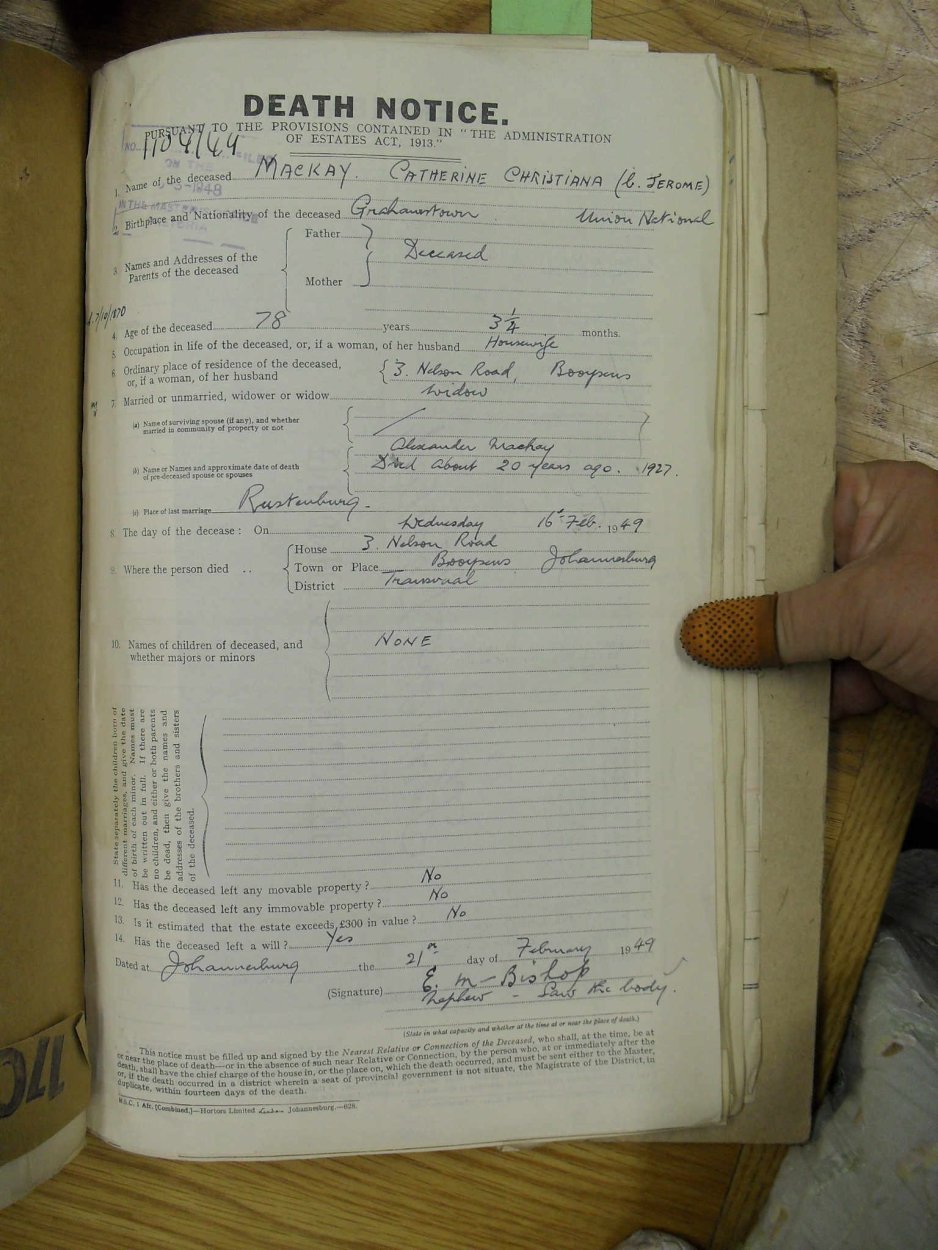 DEATH NOTICE.
PURSUANT TO THE PROVISIONS CONTAINED IN "THE ADMINISTRATION
OF ESTATES ACT, 1913."
NO. 1104/49
1. Name of the deceased MACKAY. CATHERINE CHRISTIANA (b. JEROME)
2. Birthplace and Nationality of the deceased Grahamstown. Union National
3. Names and Addresses of the Parents of the deceased
Father
Deceased
Mother
7/10/1870
4. Age of the deceased 78 years 3 1/4 months.
5. Occupation in life of the deceased, or, if a woman, of her husband Housewife
6. Ordinary place of residence of the deceased, or, if a woman, of her husband 3. Nelson Road, Booysens
7. Married or unmarried, widower or widow Widow
(a) Name of surviving spouse (if any), and whether married in community of property or not
(b) Name or Names and approximate date of death of pre-deceased spouse or spouses
Alexander Mackay
Died about 20 years ago. 1927.
(c) Place of last marriage Rustenburg.
8. The day of the decease: On Wednesday 16th Feb. 1949
9. Where the person died ..
House 3. Nelson Road
Town or Place Booysens Johannesburg
District Transvaal
10. Names of children of deceased, and whether majors or minors
NONE
State separately the children born of
different marriages, and give the date
of birth of each minor. Names must
be written out in full. If there are
no children, and either or both parents
be dead, then give the names and
addresses of the brothers and sisters
of the deceased.
11. Has the deceased left any movable property? No
12. Has the deceased left any immovable property? No
13. Is it estimated that the estate exceeds £300 in value? No
14. Has the deceased left a will? Yes
Dated at Johannesburg the 21st day of February 1949
(Signature) E. M. Bishop
nephew - Saw the body.
(State in what capacity and whether at the time at or near the place of death.)
This notice must be filled up and signed by the Nearest Relative or Connection of the Deceased, who shall, at the time, be at
or near the place of death—or in the absence of such near Relative or Connection, by the person who, at or immediately after the
death, shall have the chief charge of the house in, or the place on, which the death occurred, and must be sent either to the Master,
or, if the death occurred in a district wherein a seat of provincial government is not situate, the Magistrate of the District, in
duplicate, within fourteen days of the death.
Johannesburg.—628.